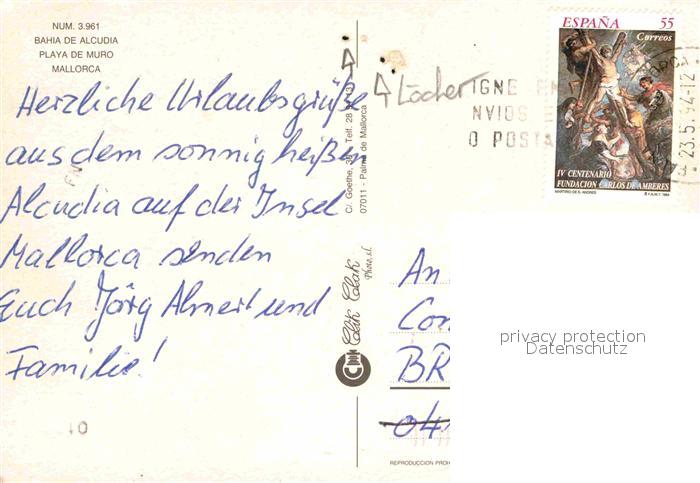 NUM. 3.961
BAHIA DE ALCUDIA
PLAYA DE MURO
MALLORCA
Herzliche Urlaubsgrüße
aus dem sonnig heißen
Alcudia auf der Insel
Mallorca senden
Euch Jörg Almert und
Familie!
Löcher
C/. Goethe, 38 - Telf. 28
07011 - Palma de Mallorca
Clik Clak
Photo, s.l.
ESPAÑA 55
Correos
IV CENTENARIO
FUNDACION CARLOS DE AMBERES
MARTIRIO DE S. ANDRES
F.N.M.T. 1994
IGNE EN
NVIOS E
O POSTA
23.5.94-12
An
Con
BR
04
privacy protection
Datenschutz
REPRODUCCION PROH